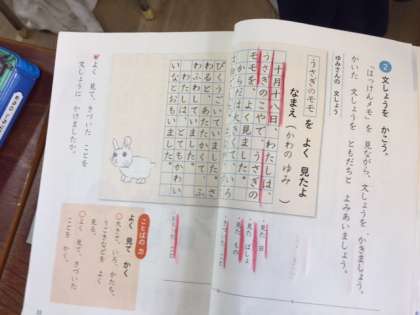 2 文しょうを かこう。
「はっけんメモ」を 見ながら、文しょうを かきましょう。
かいた 文しょうを ともだちと よみあいましょう。
ゆみさんの 文しょう
うさぎのモモ を よく 見たよ
なまえ（かわの ゆみ）
十月十八日、わたしは、
うさぎのこやで、うさぎの
モモを、よく見ました。
からだは
びくうごいていました。さ
わると、あたたかくて、ふ
わふわしていました。
わたしは、とてもかわい
いなとおもいました。
見た 日
見た ばしょ
見た もの
よく 見て、きづいた ことを
文しょうに かけましたか。
ことばの 力
よく 見て かく
大きさ、いろ、かたち、
うごきなどを よく
見る。
よく 見て、きづいた
ことを かく。